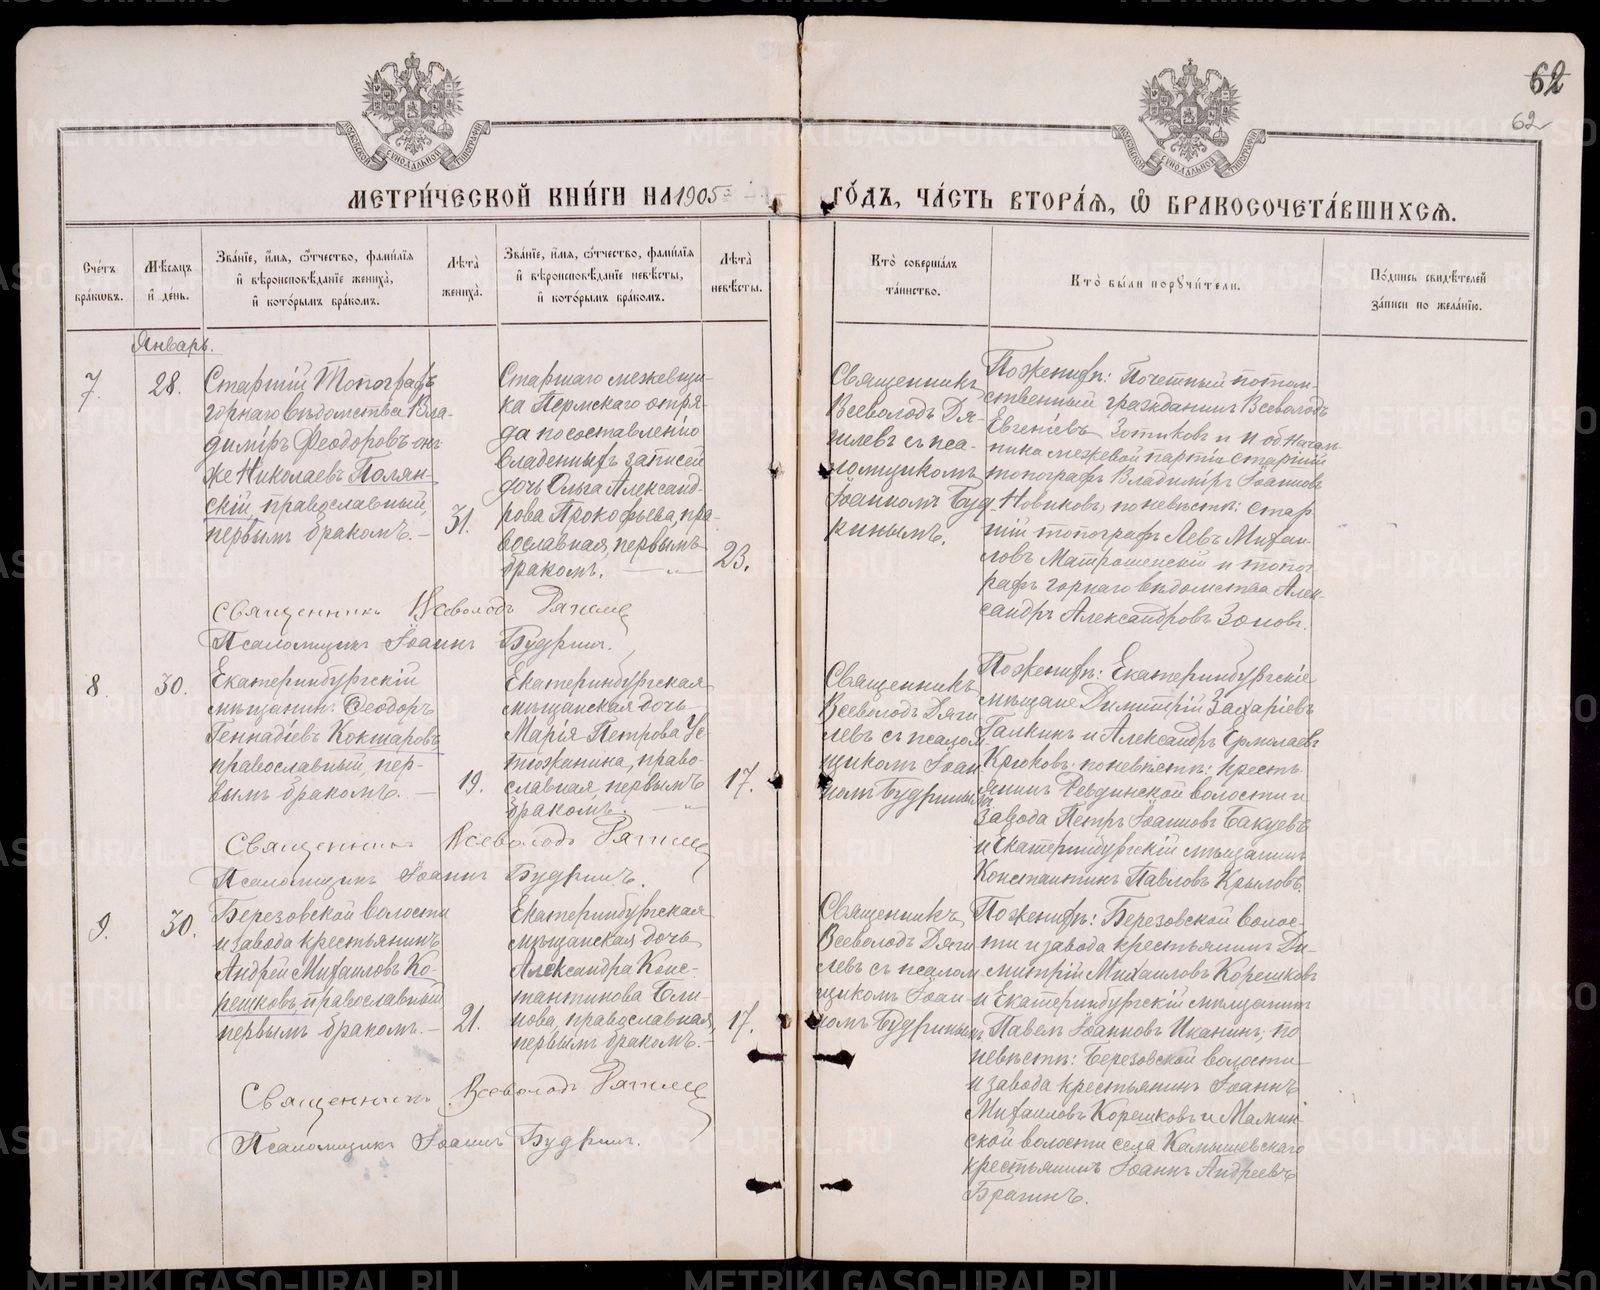 62
62
МОСКОВСКОЙ СѴНОДАЛЬНОЙ ТИПОГРАФІИ
МОСКОВСКОЙ СѴНОДАЛЬНОЙ ТИПОГРАФІИ
МЕТРИ́ЧЕСКОЙ КНИ́ГИ НА 1905 ГО́ДЪ, ЧА́СТЬ ВТОРА́Я, Ѽ БРАКОСОЧЕТА́ВШИХСЯ.
Сче́тъ бра́ковъ.
Мѣ́сяцъ и҆ де́нь.
Зва́нїе, и҆́мя, ѻ҆́тчество, фами́лїя и҆ вѣроисповѣ́данїе жениха̀, и҆ кото́рымъ бра́комъ.
Лѣта̀ жениха̀.
Зва́нїе, и҆́мя, ѻ҆́тчество, фами́лїя и҆ вѣроисповѣ́данїе невѣ́сты, и҆ кото́рымъ бра́комъ.
Лѣта̀ невѣ́сты.
Кто̀ соверша́лъ та́инство.
Кто̀ бы́ли порꙋчи́тели.
По́дпись свидѣ́телей за́писи по жела́нїю.
Январь.
7.
28.
Старшій Топографъ
горнаго вѣдомства Вла-
диміръ Ѳеодоровъ онъ
же Николаевъ Полян-
скій, православный,
первымъ бракомъ. —
31.
Старшаго межевщи-
ка Пермскаго отря-
да по составленію
владенныхъ записей
дочь Ольга Александ-
рова Прокофьева, пра-
вославная, первымъ
бракомъ.
23.
Священникъ
Всеволодъ Дя-
гилевъ съ пса-
ломщикомъ
Іоанномъ Буд
ринымъ.
По женихѣ: Почетный потом-
ственный гражданинъ Всеволодъ
Евгеніевъ Зотиковъ и Побначаль
ника межевой партіи старшій
топографъ Владиміръ Іоанновъ
Новиковъ; по невѣстѣ: стар
шій топографъ Левъ Михаи-
ловъ Матрошенскій и топо-
графъ горнаго вѣдомства Алек-
сандръ Александровъ Зоновъ.
Священникъ Всеволодъ Дягилев
Псаломщикъ Іоаннъ Будринъ.
8.
30.
Екатеринбургскій
мѣщанинъ Ѳеодоръ
Геннадіевъ Кокшаровъ,
православный, пер-
вымъ бракомъ. —
19.
Екатеринбургская
мѣщанская дочь
Марія Петрова Ус
тюжанина, право-
славная, первымъ
бракомъ.
17.
Священникъ
Всеволодъ Дяги
левъ съ псалом-
щикомъ Іоан
номъ Будринымъ
По женихѣ: Екатеринбургскіе
мѣщане Димитрій Захаріевъ
Галкинъ и Александръ Ермолаевъ
Крюковъ; по невѣстѣ: кресть-
янинъ Ревдинской волости и
завода Петръ Іоанновъ Бакуевъ
и Екатеринбургскій мѣщанинъ
Константинъ Павловъ Крыловъ.
Священникъ Всеволодъ Дягилев
Псаломщикъ Іоаннъ Будринъ.
9.
30.
Березовской волости
и завода крестьянинъ
Андрей Михаиловъ Ко-
решковъ, православный
первымъ бракомъ. —
21.
Екатеринбургская
мѣщанская дочь
Александра Конс-
тантинова Бли-
нова, православная,
первымъ бракомъ. —
17.
Священникъ
Всеволодъ Дяги
левъ съ псалом
щикомъ Іоан-
номъ Будринымъ
По женихѣ: Березовской волос-
ти и завода крестьянинъ Ди-
митрій Михаиловъ Корешковъ
и Екатеринбургскій мѣщанинъ
Павелъ Іоанновъ Иканинъ; по
невѣстѣ: Березовской волости
и завода крестьянинъ Іоаннъ
Михаиловъ Корешковъ и Мамин
ской волости села Камышевскаго
крестьянинъ Іоаннъ Андреевъ
Брагинъ.
Священникъ Всеволодъ Дягилев
Псаломщикъ Іоаннъ Будринъ.
METRIKI.GASO-URAL.RU